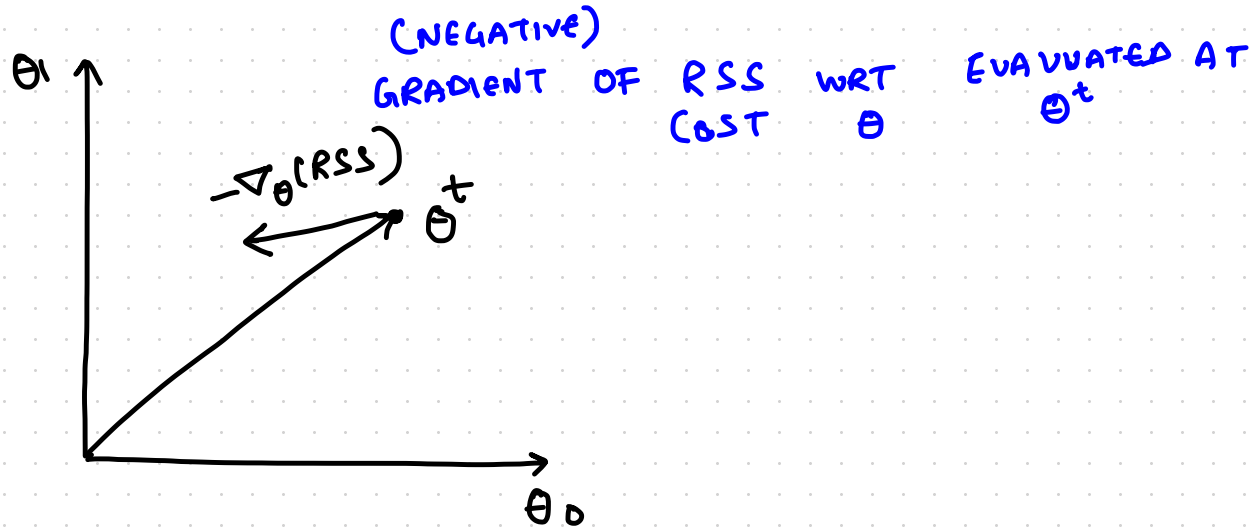 (NEGATIVE)
GRADIENT OF RSS WRT EVALUATED AT
COST θ θ^t
θ1
-∇θ(RSS)
θ^t
θ0